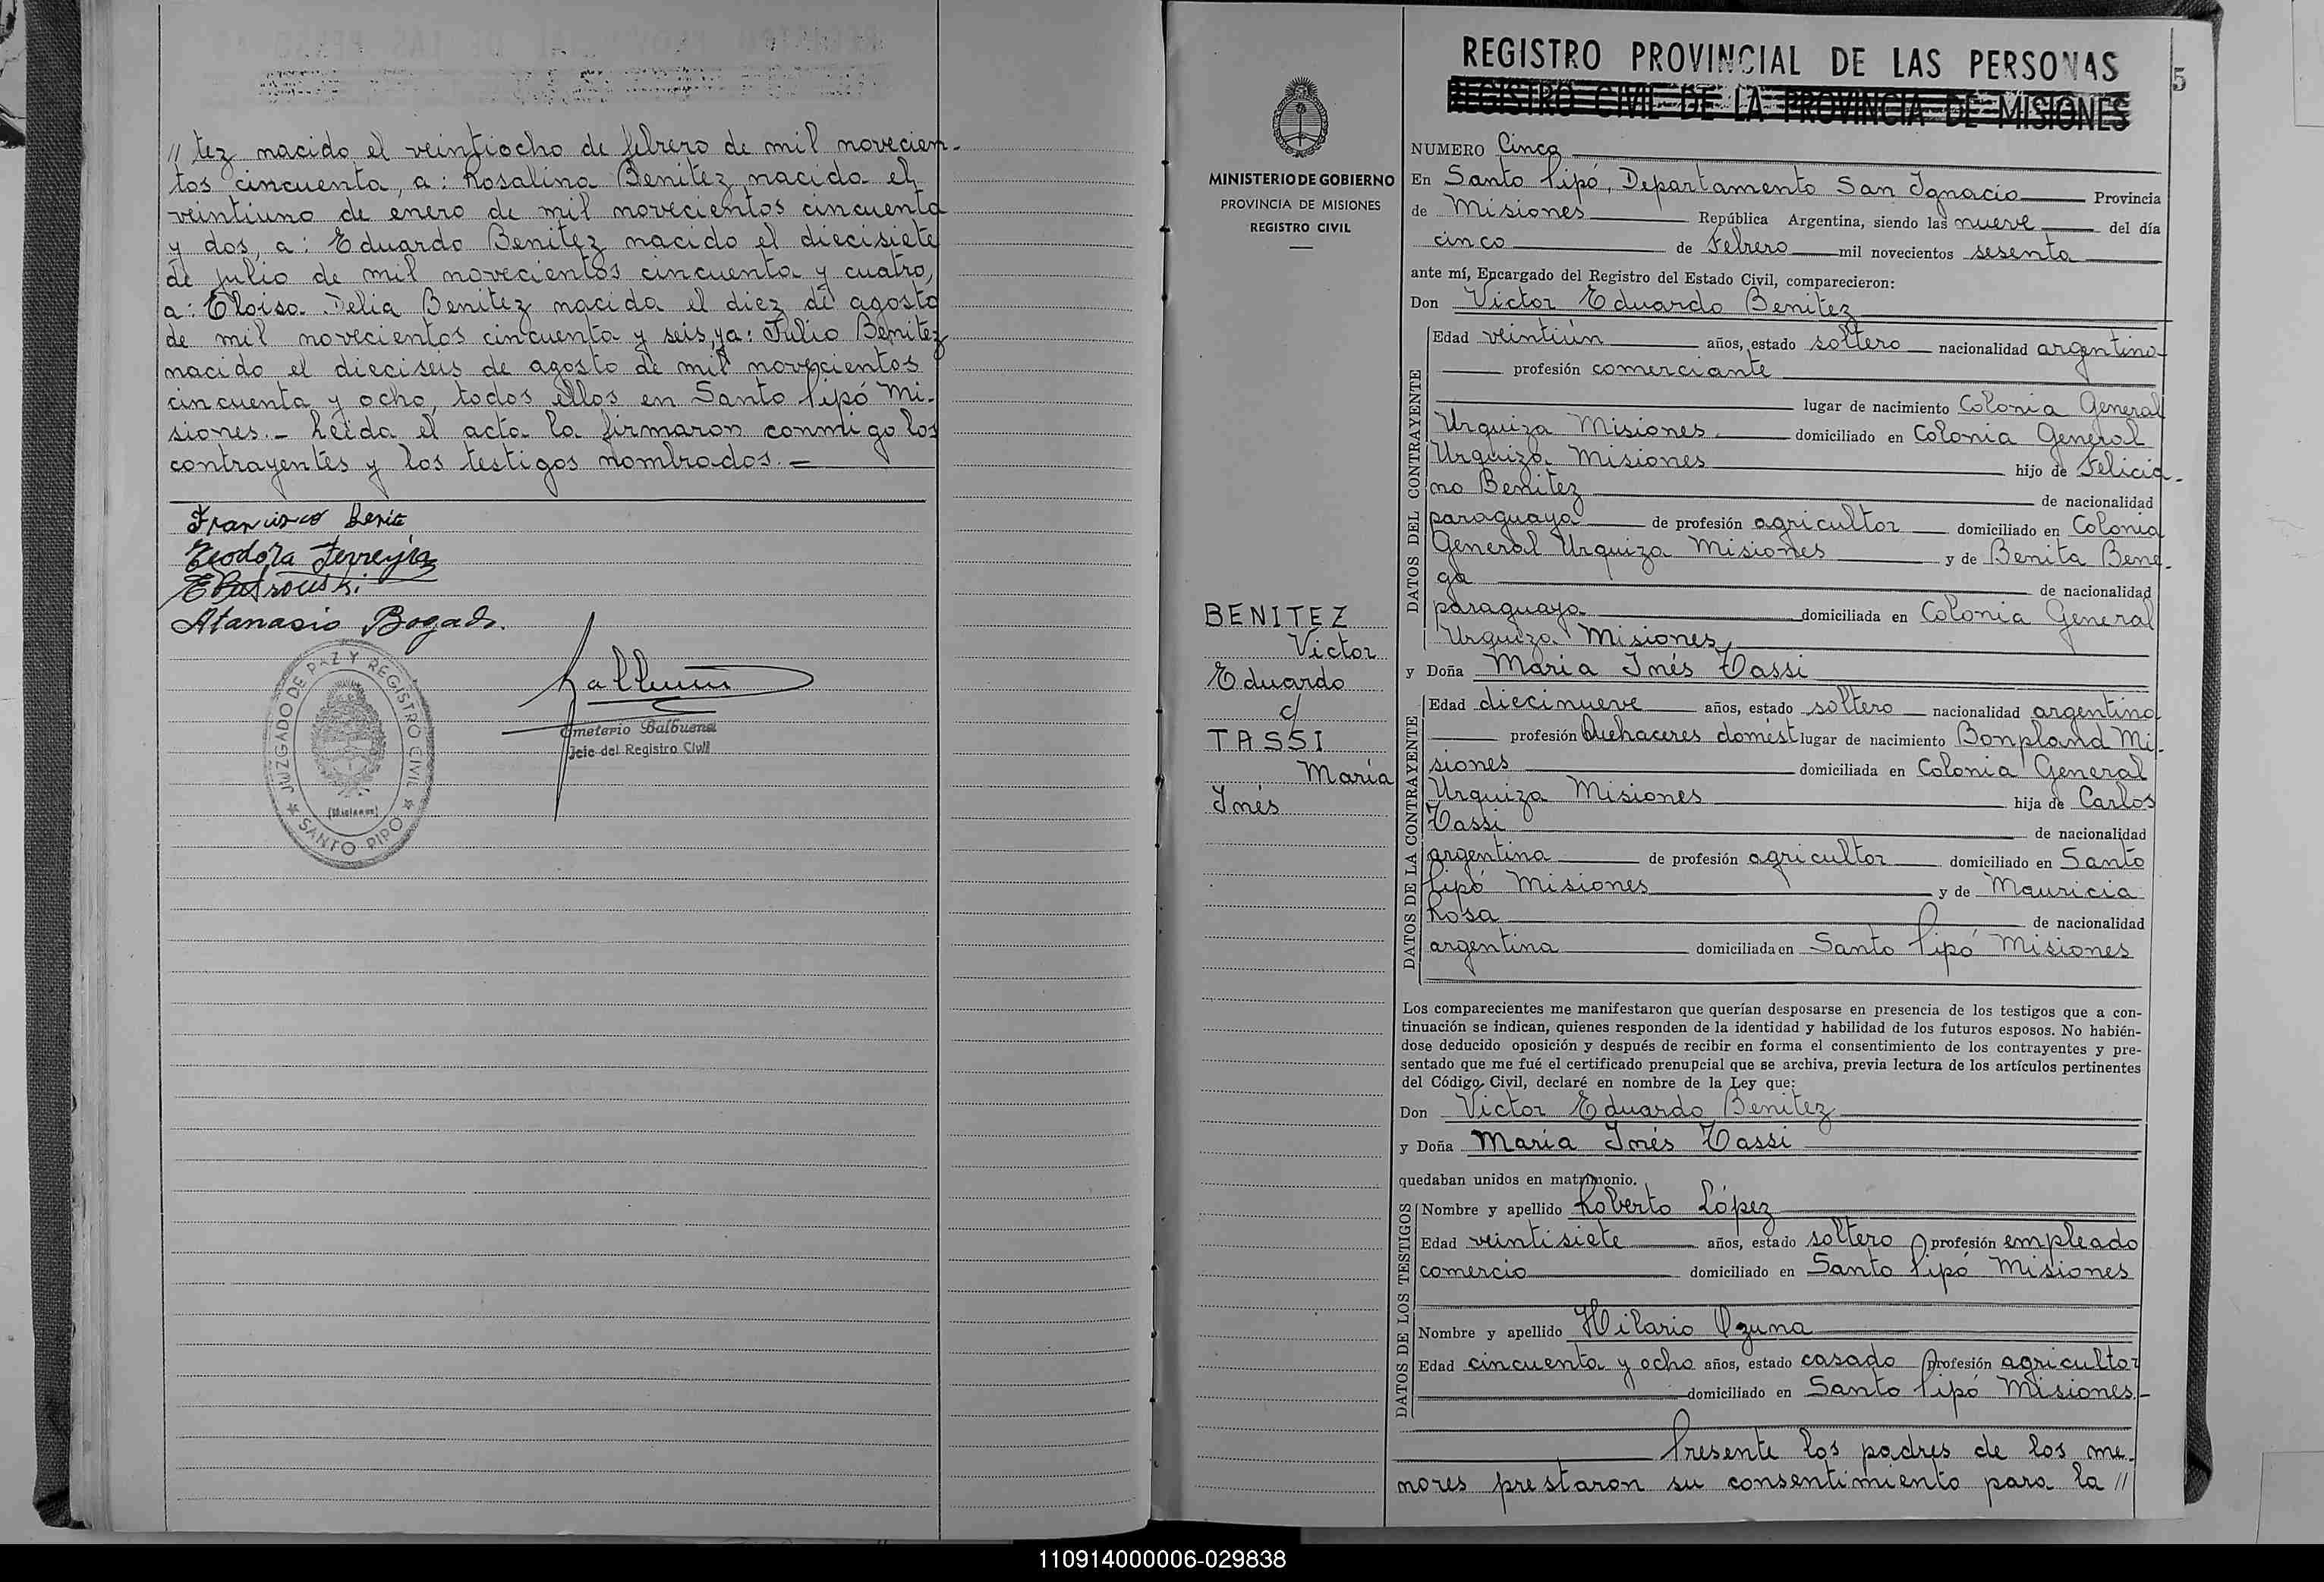 // tez nacido el veintiocho de febrero de mil novecien-
tos cincuenta, a: Rosalino Benitez nacido el
veintiuno de enero de mil novecientos cincuenta
y dos, a: Eduardo Benitez nacido el diecisiete
de julio de mil novecientos cincuenta y cuatro,
a: Eloisa Delia Benitez nacida el diez de agosto
de mil novecientos cincuenta y seis, ya: Julio Benitez
nacido el dieciseis de agosto de mil novecientos
cincuenta y ocho, todos ellos en Santo Pipó Mi-
siones.- Leida el acta la firmaron conmigo los
contrayentes y los testigos nombrados.=
Francisco
Teodora Ferreyra
Atanasio Bogado.
JUZGADO DE PAZ Y REGISTRO CIVIL
(Misiones)
★ SANTO PIPO ★
Emeterio Balbuena
Jefe del Registro Civil
REGISTRO PROVINCIAL DE LAS PERSONAS
5
REGISTRO CIVIL DE LA PROVINCIA DE MISIONES
MINISTERIO DE GOBIERNO
PROVINCIA DE MISIONES
REGISTRO CIVIL
BENITEZ
Victor
Eduardo
c/
TASSI
María
Inés
NUMERO Cinco
En Santo Pipó, Departamento San Ignacio Provincia
de Misiones República Argentina, siendo las nueve del día
cinco de Febrero mil novecientos sesenta
ante mí, Encargado del Registro del Estado Civil, comparecieron:
Don Victor Eduardo Benitez
DATOS DEL CONTRAYENTE
Edad veintiún años, estado soltero nacionalidad argentina
profesión comerciante
lugar de nacimiento Colonia General
Urquiza Misiones domiciliado en Colonia General
Urquiza Misiones hijo de Felicia-
no Benitez de nacionalidad
paraguaya de profesión agricultor domiciliado en Colonia
General Urquiza Misiones y de Benita Bene-
ga de nacionalidad
paraguaya domiciliada en Colonia General
Urquiza Misiones
y Doña Maria Inés Tassi
DATOS DE LA CONTRAYENTE
Edad diecinueve años, estado soltero nacionalidad argentina
profesión Quehaceres domést lugar de nacimiento Bonpland Mi-
siones domiciliada en Colonia General
Urquiza Misiones hija de Carlos
Tassi de nacionalidad
argentina de profesión agricultor domiciliado en Santo
Pipó Misiones y de Mauricia
Rosa de nacionalidad
argentina domiciliada en Santo Pipó Misiones
Los comparecientes me manifestaron que querían desposarse en presencia de los testigos que a con-
tinuación se indican, quienes responden de la identidad y habilidad de los futuros esposos. No habién-
dose deducido oposición y después de recibir en forma el consentimiento de los contrayentes y pre-
sentado que me fué el certificado prenupcial que se archiva, previa lectura de los artículos pertinentes
del Código Civil, declaré en nombre de la Ley que:
Don Victor Eduardo Benitez
y Doña María Inés Tassi
quedaban unidos en matrimonio.
DATOS DE LOS TESTIGOS
Nombre y apellido Roberto López
Edad veintisiete años, estado soltero profesión empleado
comercio domiciliado en Santo Pipó Misiones
Nombre y apellido Hilario Ozuna
Edad cincuenta y ocho años, estado casado profesión agricultor
domiciliado en Santo Pipó Misiones.-
Presente los padres de los me-
nores prestaron su consentimiento para la //
110914000006-029838